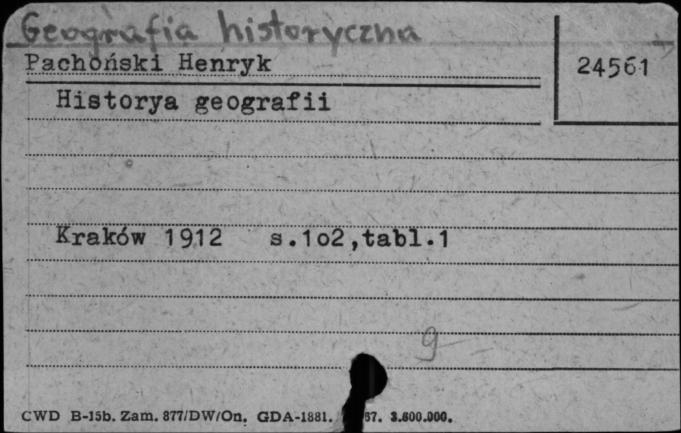 Geografia historyczna
Pachoński Henryk
24561
Historya geografii
Kraków 1912 s.1o2,tabl.1
g
CWD B-15b. Zam. 877/DW/On. GDA-1881. 67. 3.600.000.